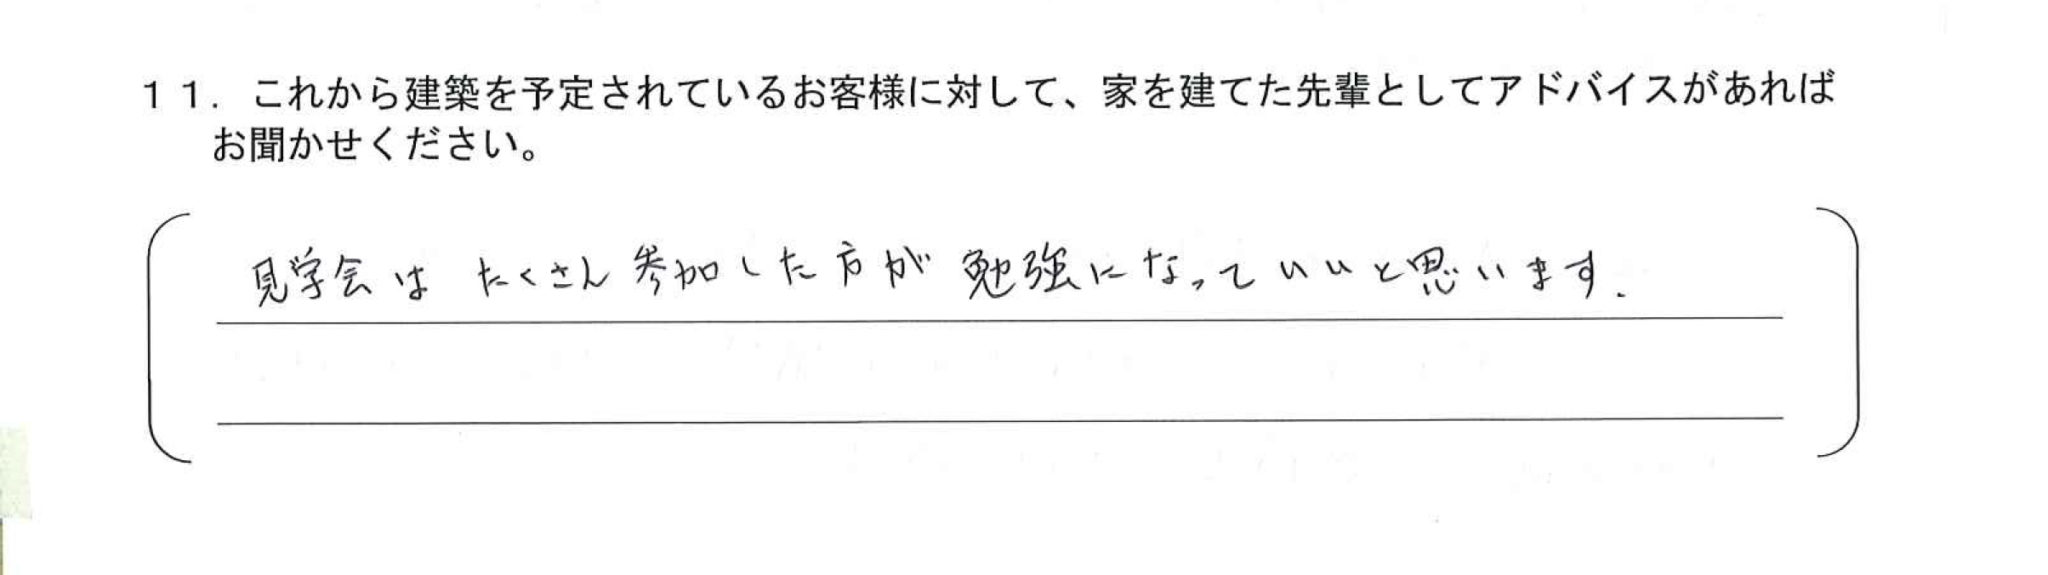 １１．これから建築を予定されているお客様に対して、家を建てた先輩としてアドバイスがあれば
お聞かせください。
見学会は たくさん 参加した方が 勉強になっていいと思います.